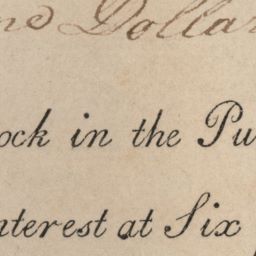 ne Dollar
ock in the Pu
nterest at Six